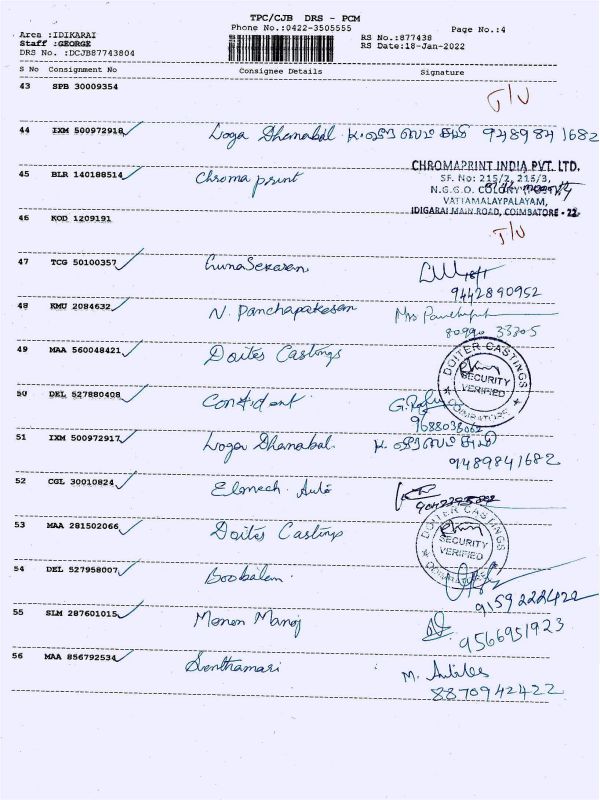 TPC/CJB DRS - PCM
Phone No.:0422-3505555
Page No.:4
Area :IDIKARAI
Staff :GEORGE
DRS No. :DCJB87743804
RS No.:877438
RS Date:18-Jan-2022
S No Consignment No Consignee Details Signature
43 SPB 30009354
T/U
44 IXM 500972918 Loga Dhanabal 9489841682
45 BLR 140188514 Chroma print
CHROMAPRINT INDIA PVT. LTD.
SF. No: 215/2, 216/3,
N.G.G.O. COLONY
VATTAMALAYPALAYAM,
IDIGARAI MAIN ROAD, COIMBATORE - 22
46 KOD 1209191
T/U
47 TCG 50100357 GunaSekaran
9442890952
48 KMU 2084632 N. Panchapakesan
80990 33705
49 MAA 560048421 Doites Castings
DOITER CASTINGS
SECURITY
VERIFIED
COIMBATORE
50 DEL 527880408 Confident
9688038062
51 IXM 500972917 Loga Dhanabal
9489841682
52 CGL 30010824 Elmech Auto
53 MAA 281502066 Doites Castings
DOITER CASTINGS
SECURITY
VERIFIED
COIMBATORE
54 DEL 527958007 Boobalan
9159222422
55 SLM 287601015 Menon Manoj
9566951923
56 MAA 856792534 Senthamari
8870942422